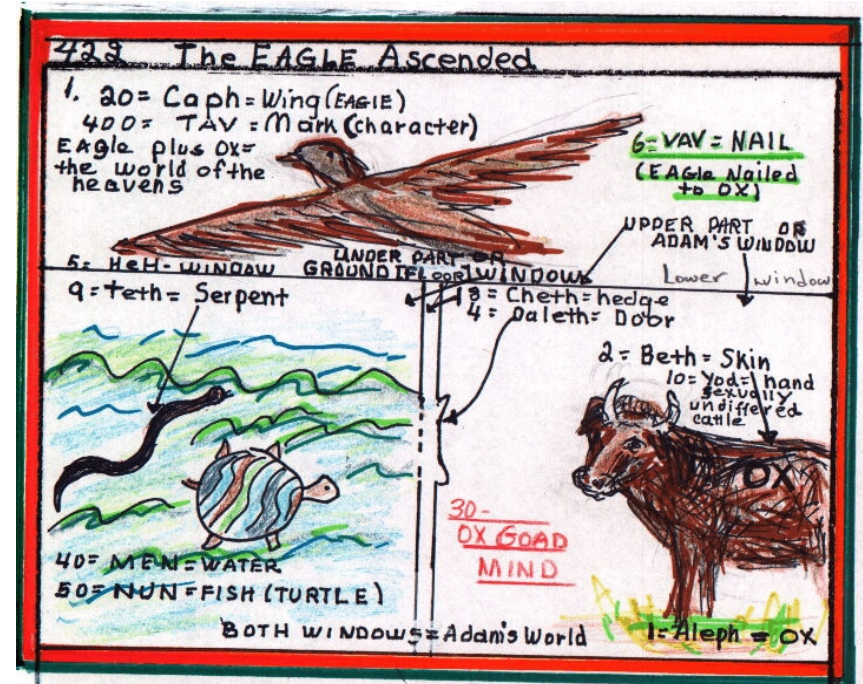 422 The EAGLE Ascended
1. 20= Caph= Wing (EAGlE)
400= TAV = Mark (character)
EAgle plus OX=
the world of the
heavens
6= VAV = NAIL
(EAGle Nailed
to OX)
UPPER PART OR
ADAM'S WINDOW
UNDER PART OR
5= HeH- WINDOW GROUND [Floor] WINDOW
Lower window
9= Teth= Serpent
8= Cheth= hedge
4= Daleth= Door
2= Beth = Skin
10= Yod= hand
sexually
undiffered
cattle
OX
30-
OX GOAD
MIND
40= MEN= WATER
50= NUN = FISH (TURTLE)
BOTH WINDOWS= Adam's World
1= Aleph = OX